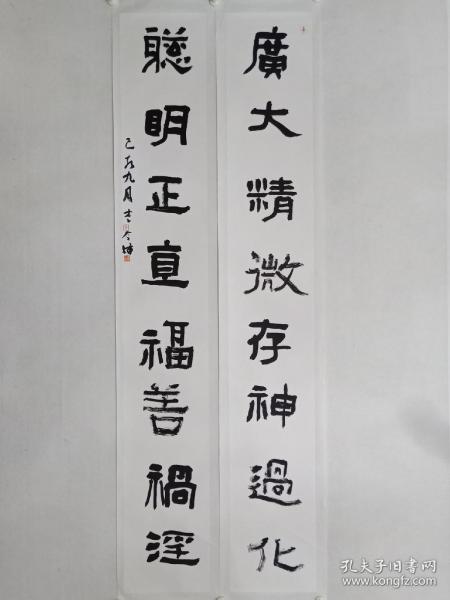 廣大精微存神過化
聰明正直福善禍淫
己亥九月
孔夫子旧书网
www.kongfz.com